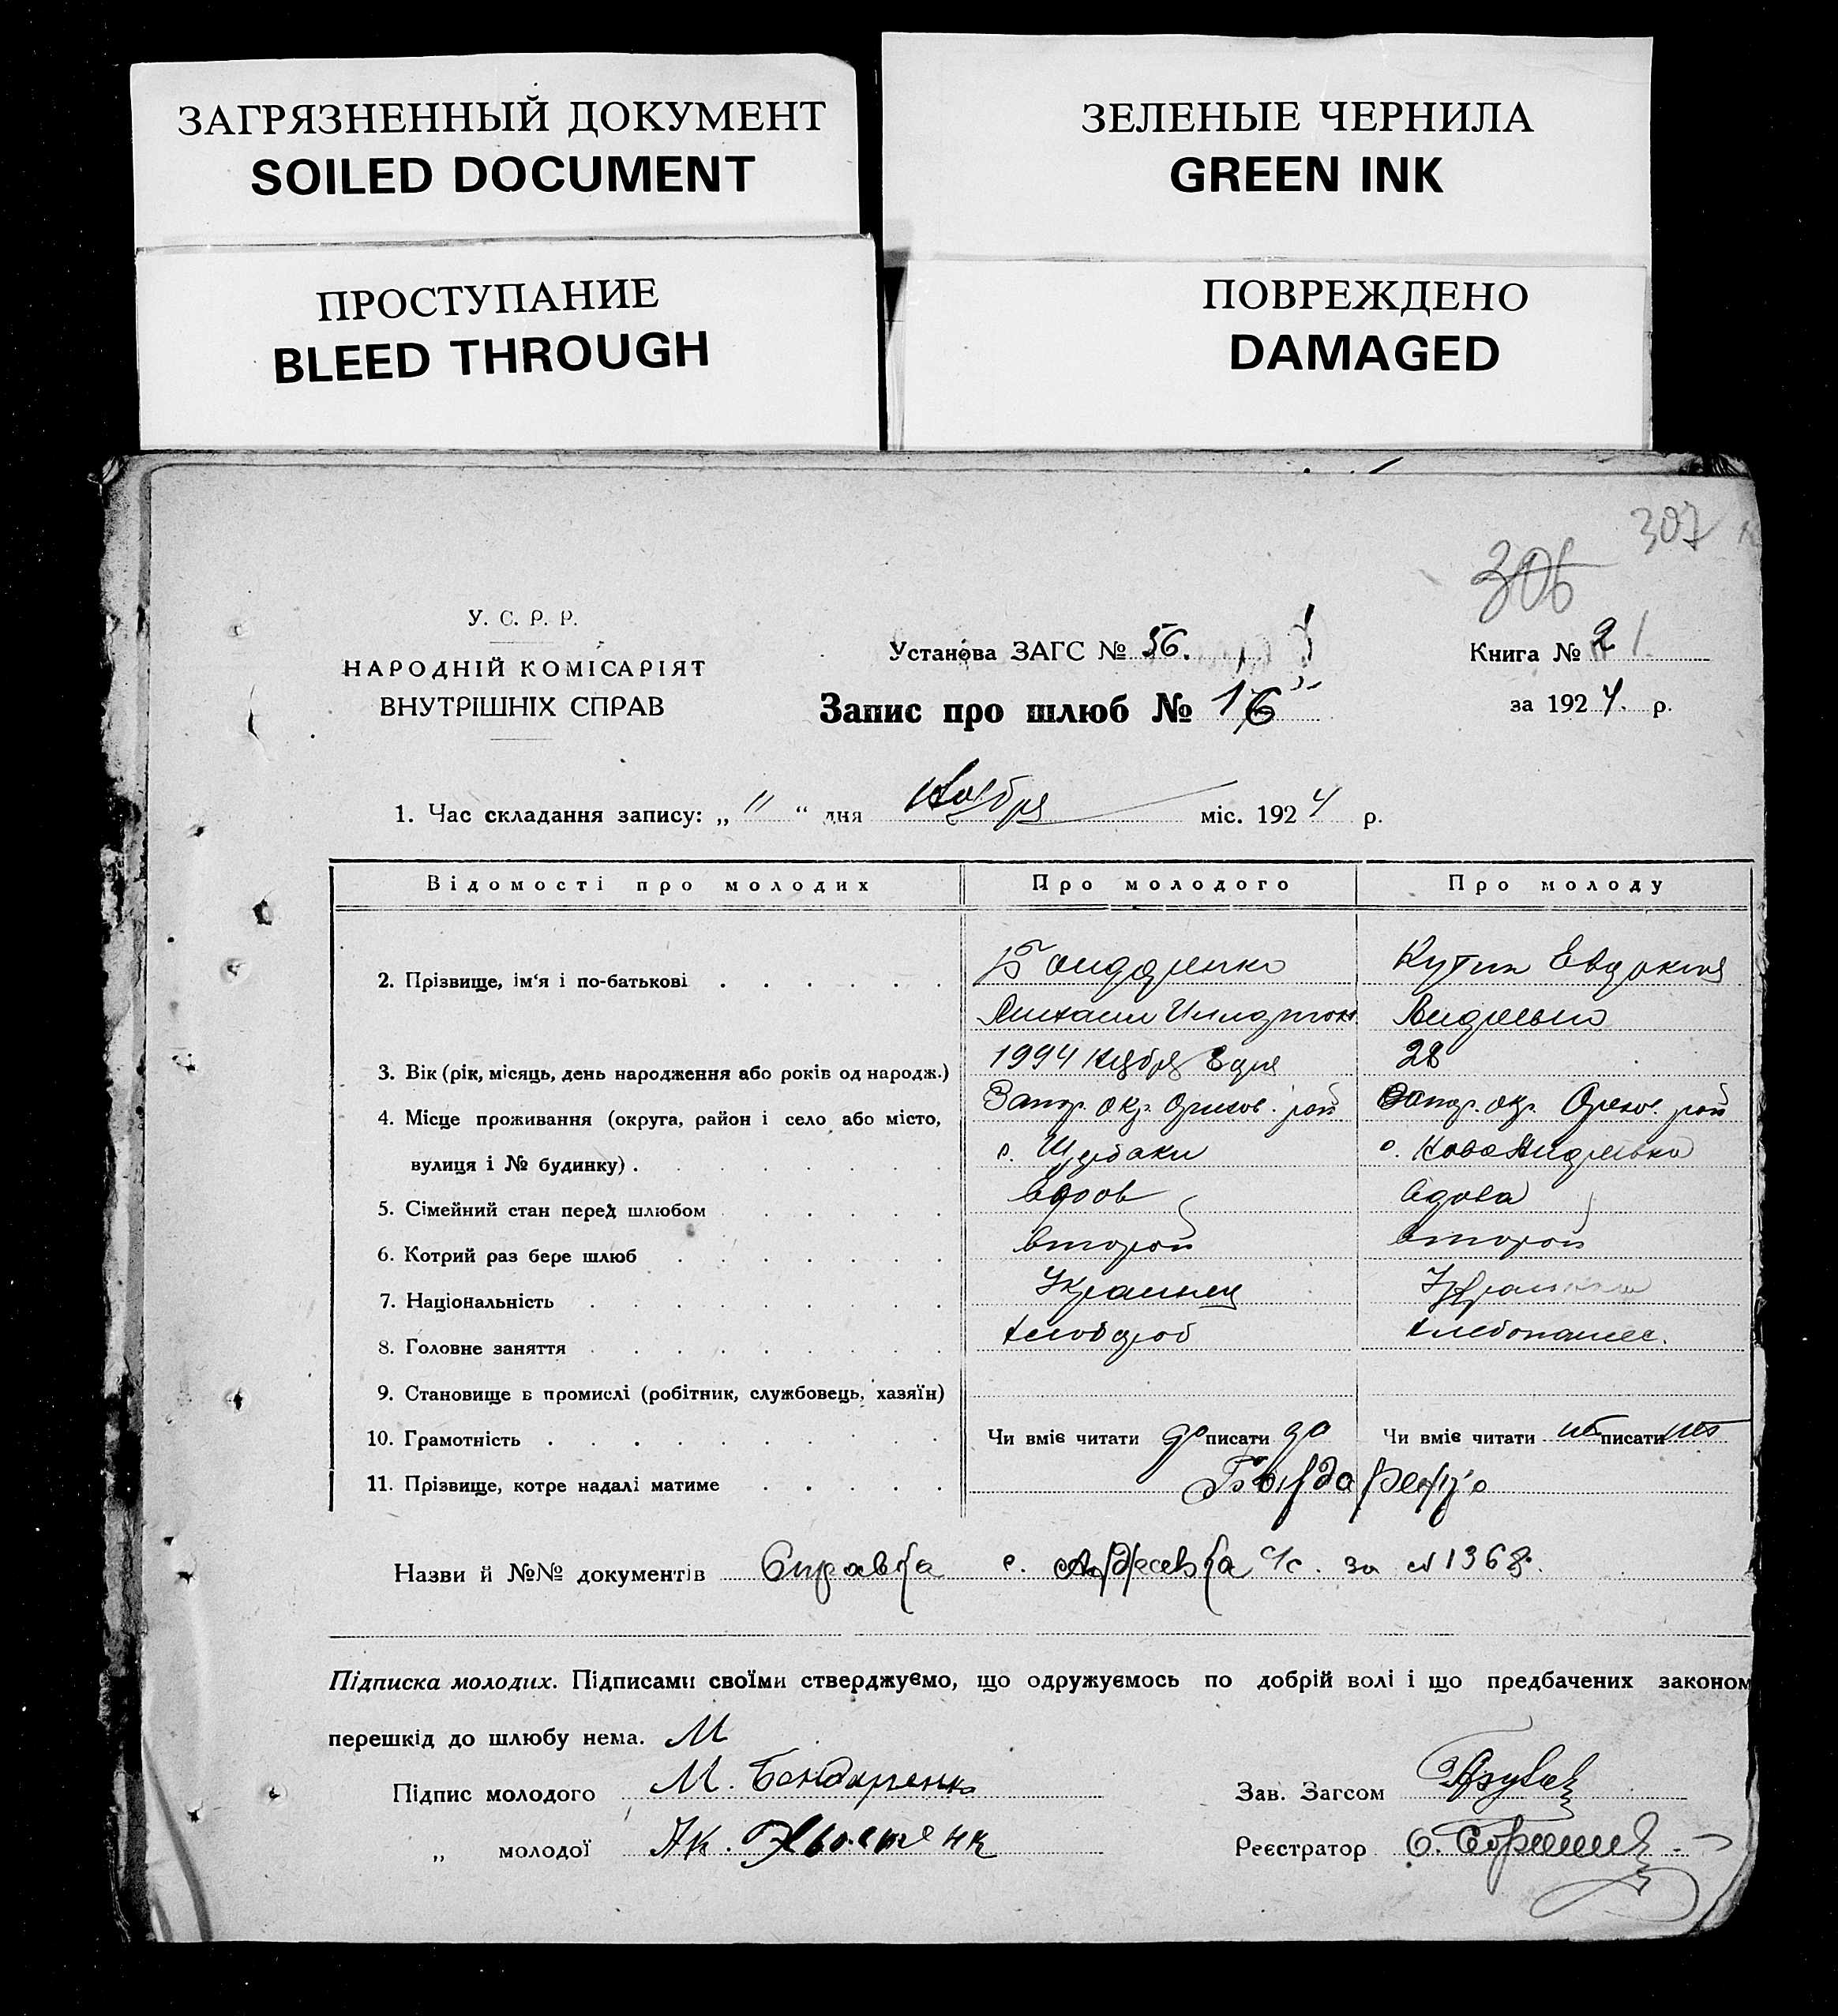 ЗАГРЯЗНЕННЫЙ ДОКУМЕНТ
SOILED DOCUMENT
ПРОСТУПАНИЕ
BLEED THROUGH
ЗЕЛЕНЫЕ ЧЕРНИЛА
GREEN INK
ПОВРЕЖДЕНО
DAMAGED
307
306
У. С. Р. Р.
НАРОДНІЙ КОМІСАРІЯТ
ВНУТРІШНІХ СПРАВ
Установа ЗАГС № 56.
Запис про шлюб № 16
Книга № 2
за 1924. р.
1. Час складання запису: „ 11 “ дня Ноября міс. 1924 р.
Відомості про молодих Про молодого Про молоду
2. Прізвище, ім'я і по-батькові Бондаренко Евдокия
Михаил Андреевна
3. Вік (рік, місяць, день народження або років од народж.) 1994 Ноября 8 дня 28
4. Місце проживання (округа, район і село або місто, Запор. окр. Орехов. рай Запор. окр. Орехов. рай
вулиця і № будинку) с. Щербаки с. Ново Андреевка
5. Сімейний стан перед шлюбом вдов вдова
6. Котрий раз бере шлюб второй второй
7. Національність Украинец Украинка
8. Головне заняття хлебороб хлебопашес.
9. Становище в промислі (робітник, службовець, хазяїн)
10. Грамотність Чи вміє читати до писати до Чи вміє читати писати
11. Прізвище, котре надалі матиме Бондаренко
Назви й №№ документів Справка с. с/с. за № 1368.
Підписка молодих. Підписами своїми стверджуємо, що одружуємось по добрій волі і що предбачених законом
перешкід до шлюбу нема. М
Підпис молодого М. Бондаренко Зав. Загсом
„ молодої Реєстратор